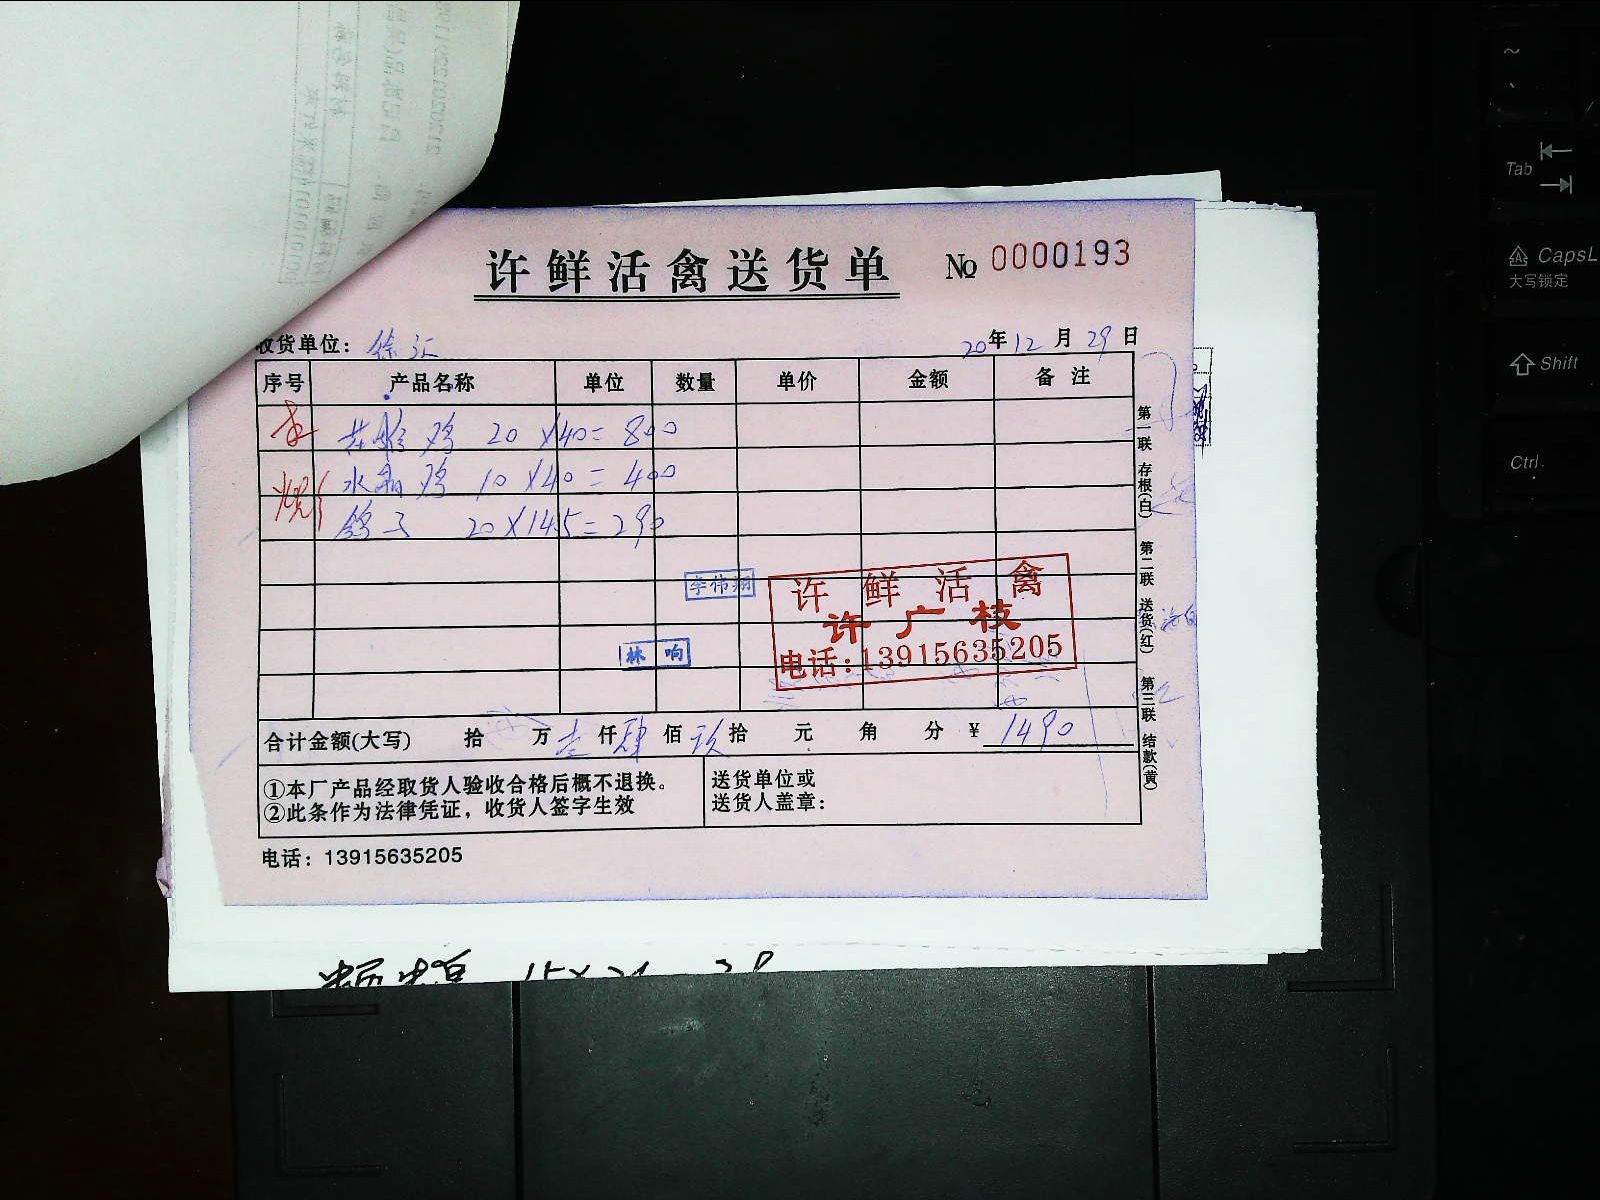 许鲜活禽送货单 № 0000193
收货单位: 徐汇 20年12月29日
序号 产品名称 单位 数量 单价 金额 备注
鸡 20×40=800
水晶鸡 10×40=400
鸽子 20×14.5=290
李伟翔
林响
许鲜活禽
许广枝
电话:13915635205
合计金额(大写) 拾 万 壹仟 肆佰 玖拾 元 角 分 ¥ 1490
①本厂产品经取货人验收合格后概不退换。
②此条作为法律凭证，收货人签字生效
送货单位或
送货人盖章:
电话: 13915635205
第一联 存根(白) 第二联 送货(红) 第三联 结款(黄)
~
Tab
CapsL
大写锁定
Shift
Ctrl